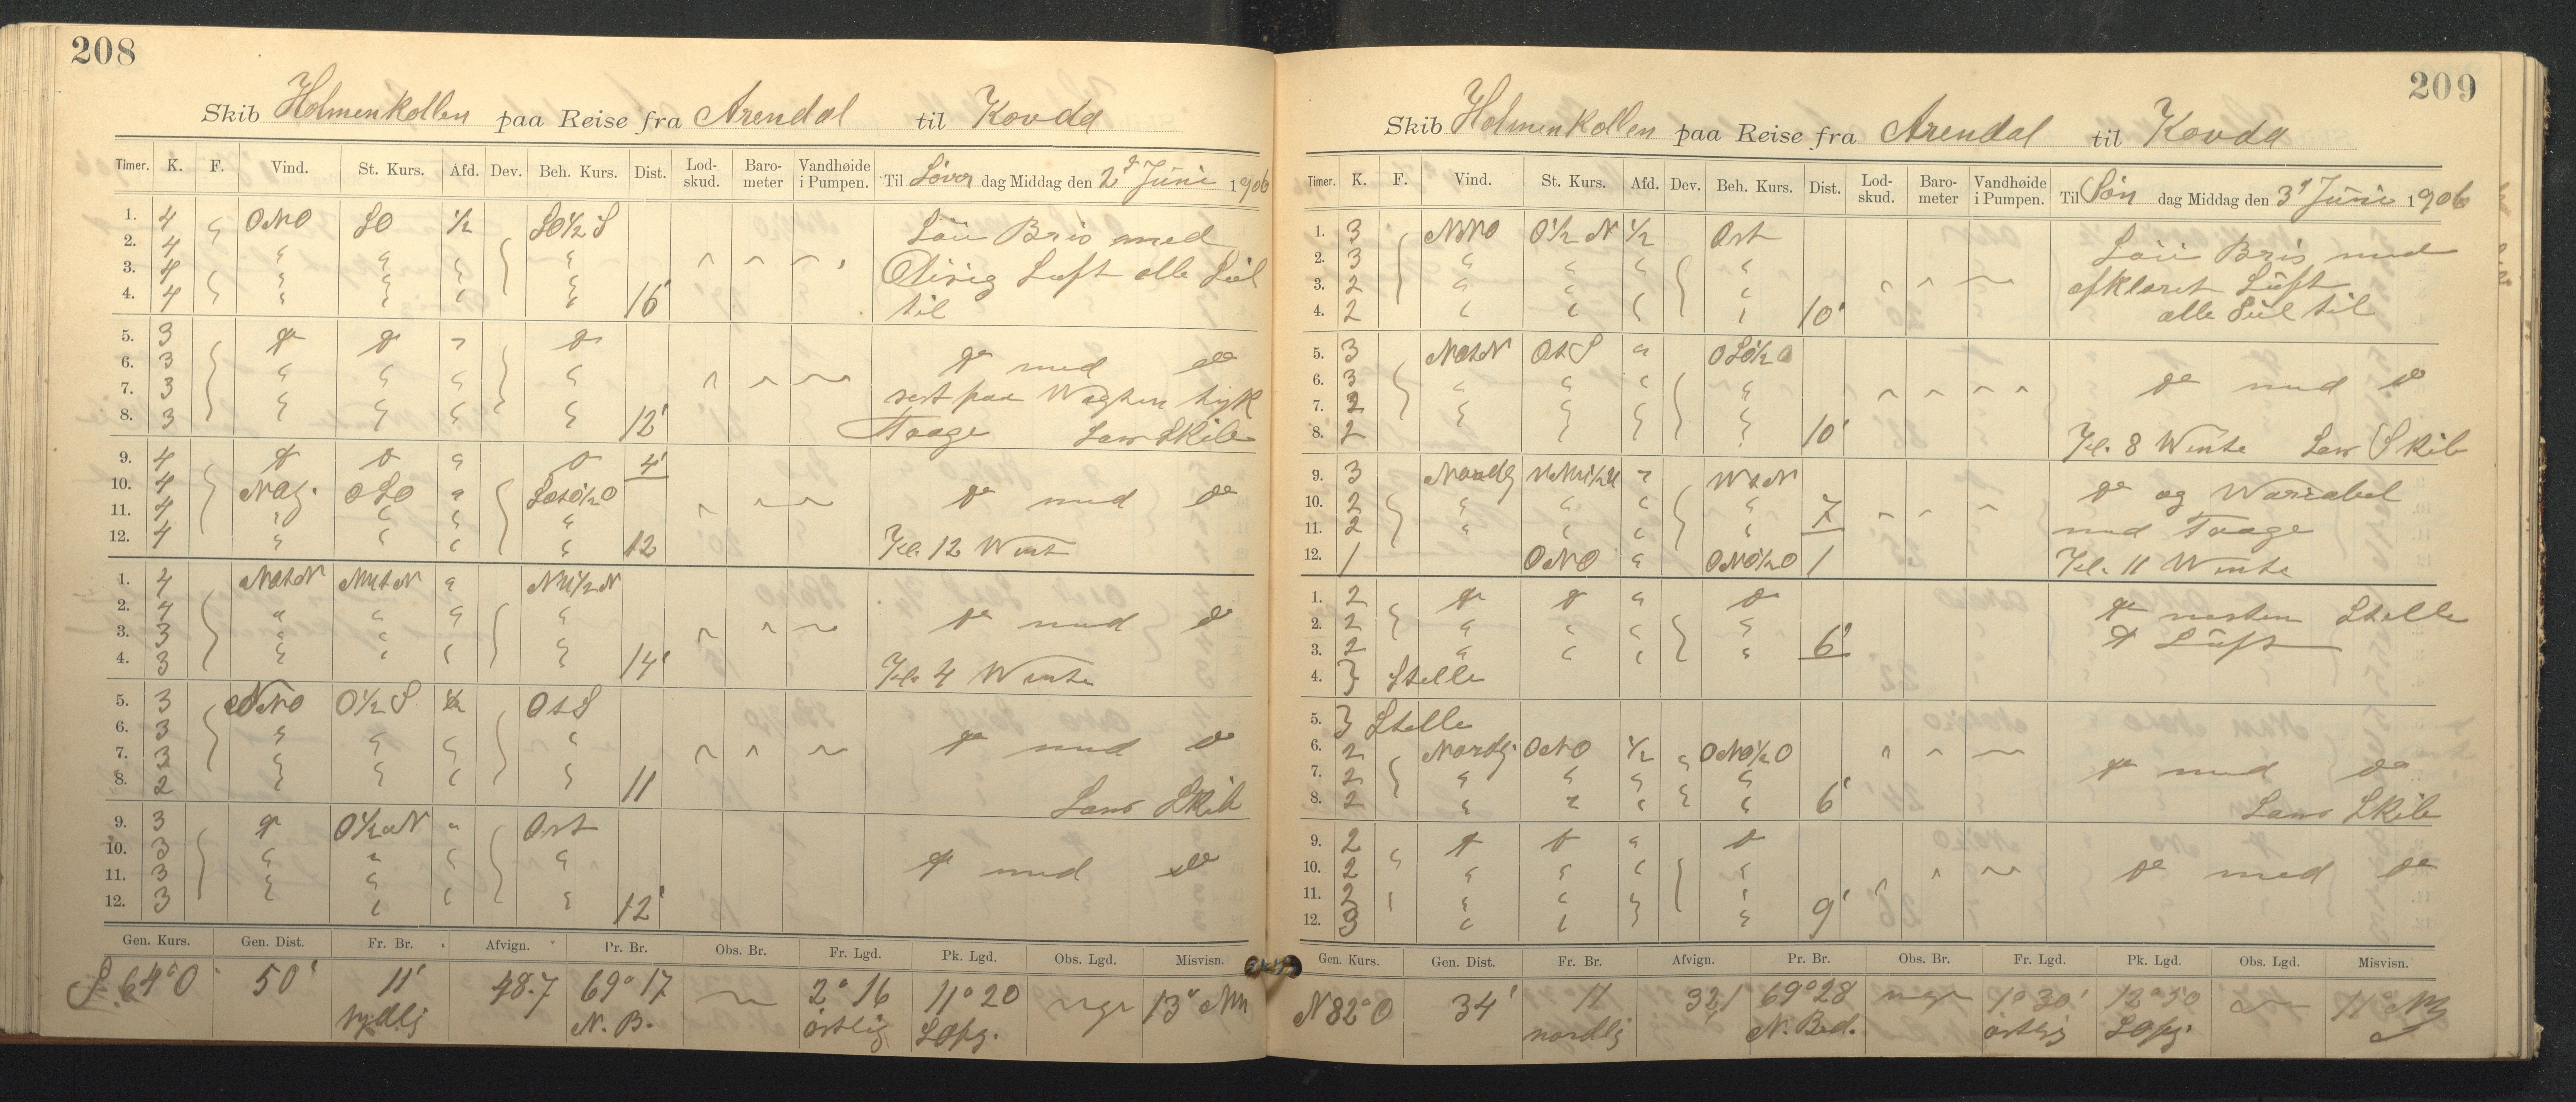 208
Skib Holmenkollen paa Reise fra Arendal til Kovda
Timer. K. F. Vind. St. Kurs. Afd. Dev. Beh. Kurs. Dist. Lod-skud. Baro-meter Vandhøide i Pumpen. Til Löver dag Middag den 2d Juni 1906
1. 4 ONO SO 1/2 SO 1/2 S Löi Bris med
2. 4
3. 4 Disig Luft alle Seil
4. 4 16' til
5. 3 do do do
6. 3 do med do
7. 3 sist paa Wagten tyk
8. 3 12' Taage Lans Skib
9. 4 do do do 4'
10. 4 OSO do med do
11. 4
12. 4 12 Kl. 12 Went
1. 4 NOtN NWtN NW1/2N
2. 4 do med do
3. 3
4. 3 14' Kl. 4 Wente
5. 3 NNO O1/2 S 1/2 OtS
6. 3
7. 3 do med do
8. 2 11 Lans Skib
9. 3 do O1/2N Ost
10. 3
11. 3 do med do
12. 3 12'
Gen. Kurs. Gen. Dist. Fr. Br. Afvign. Pr. Br. Obs. Br. Fr. Lgd. Pk. Lgd. Obs. Lgd. Misvisn.
S 64° O 50' 11' 48.7 69° 17 2° 16 11° 20 13°
sydlig N. B. östlig
209
Skib Holmenkollen paa Reise fra Arendal til Kovda
Timer. K. F. Vind. St. Kurs. Afd. Dev. Beh. Kurs. Dist. Lod-skud. Baro-meter Vandhøide i Pumpen. Til Søn dag Middag den 3d Juni 1906
1. 3 NNO O1/2 N 1/2 Ost Löi Bris med
2. 3
3. 2 afklaret Luft
4. 2 10' alle Seil til
5. 3 NOtN OtS OSO1/2O
6. 3 do med do
7. 2
8. 2 10' Kl. 8 Wente Lans Skib
9. 3 Nordlg WtN do og Wariabel
10. 2 7
11. 2 med Taage
12. 1 ONO ONO1/2O 1 Kl. 11 Wente
1. 2 do do do do nesten Stelle
2. 2 do Luft
3. 2 6'
4. Stelle
5. Stelle
6. 2 Nordlg. ONO 1/2 ONO1/2O
7. 2 do med do
8. 2 6' Lans Skib
9. 2 do do do
10. 2 do med do
11. 2
12. 3 9'
Gen. Kurs. Gen. Dist. Fr. Br. Afvign. Pr. Br. Obs. Br. Fr. Lgd. Pk. Lgd. Obs. Lgd. Misvisn.
N 82° O 34' 11 32,1 69° 28 1° 30' 12° 50 11°
nordlig N. Bred. östlig